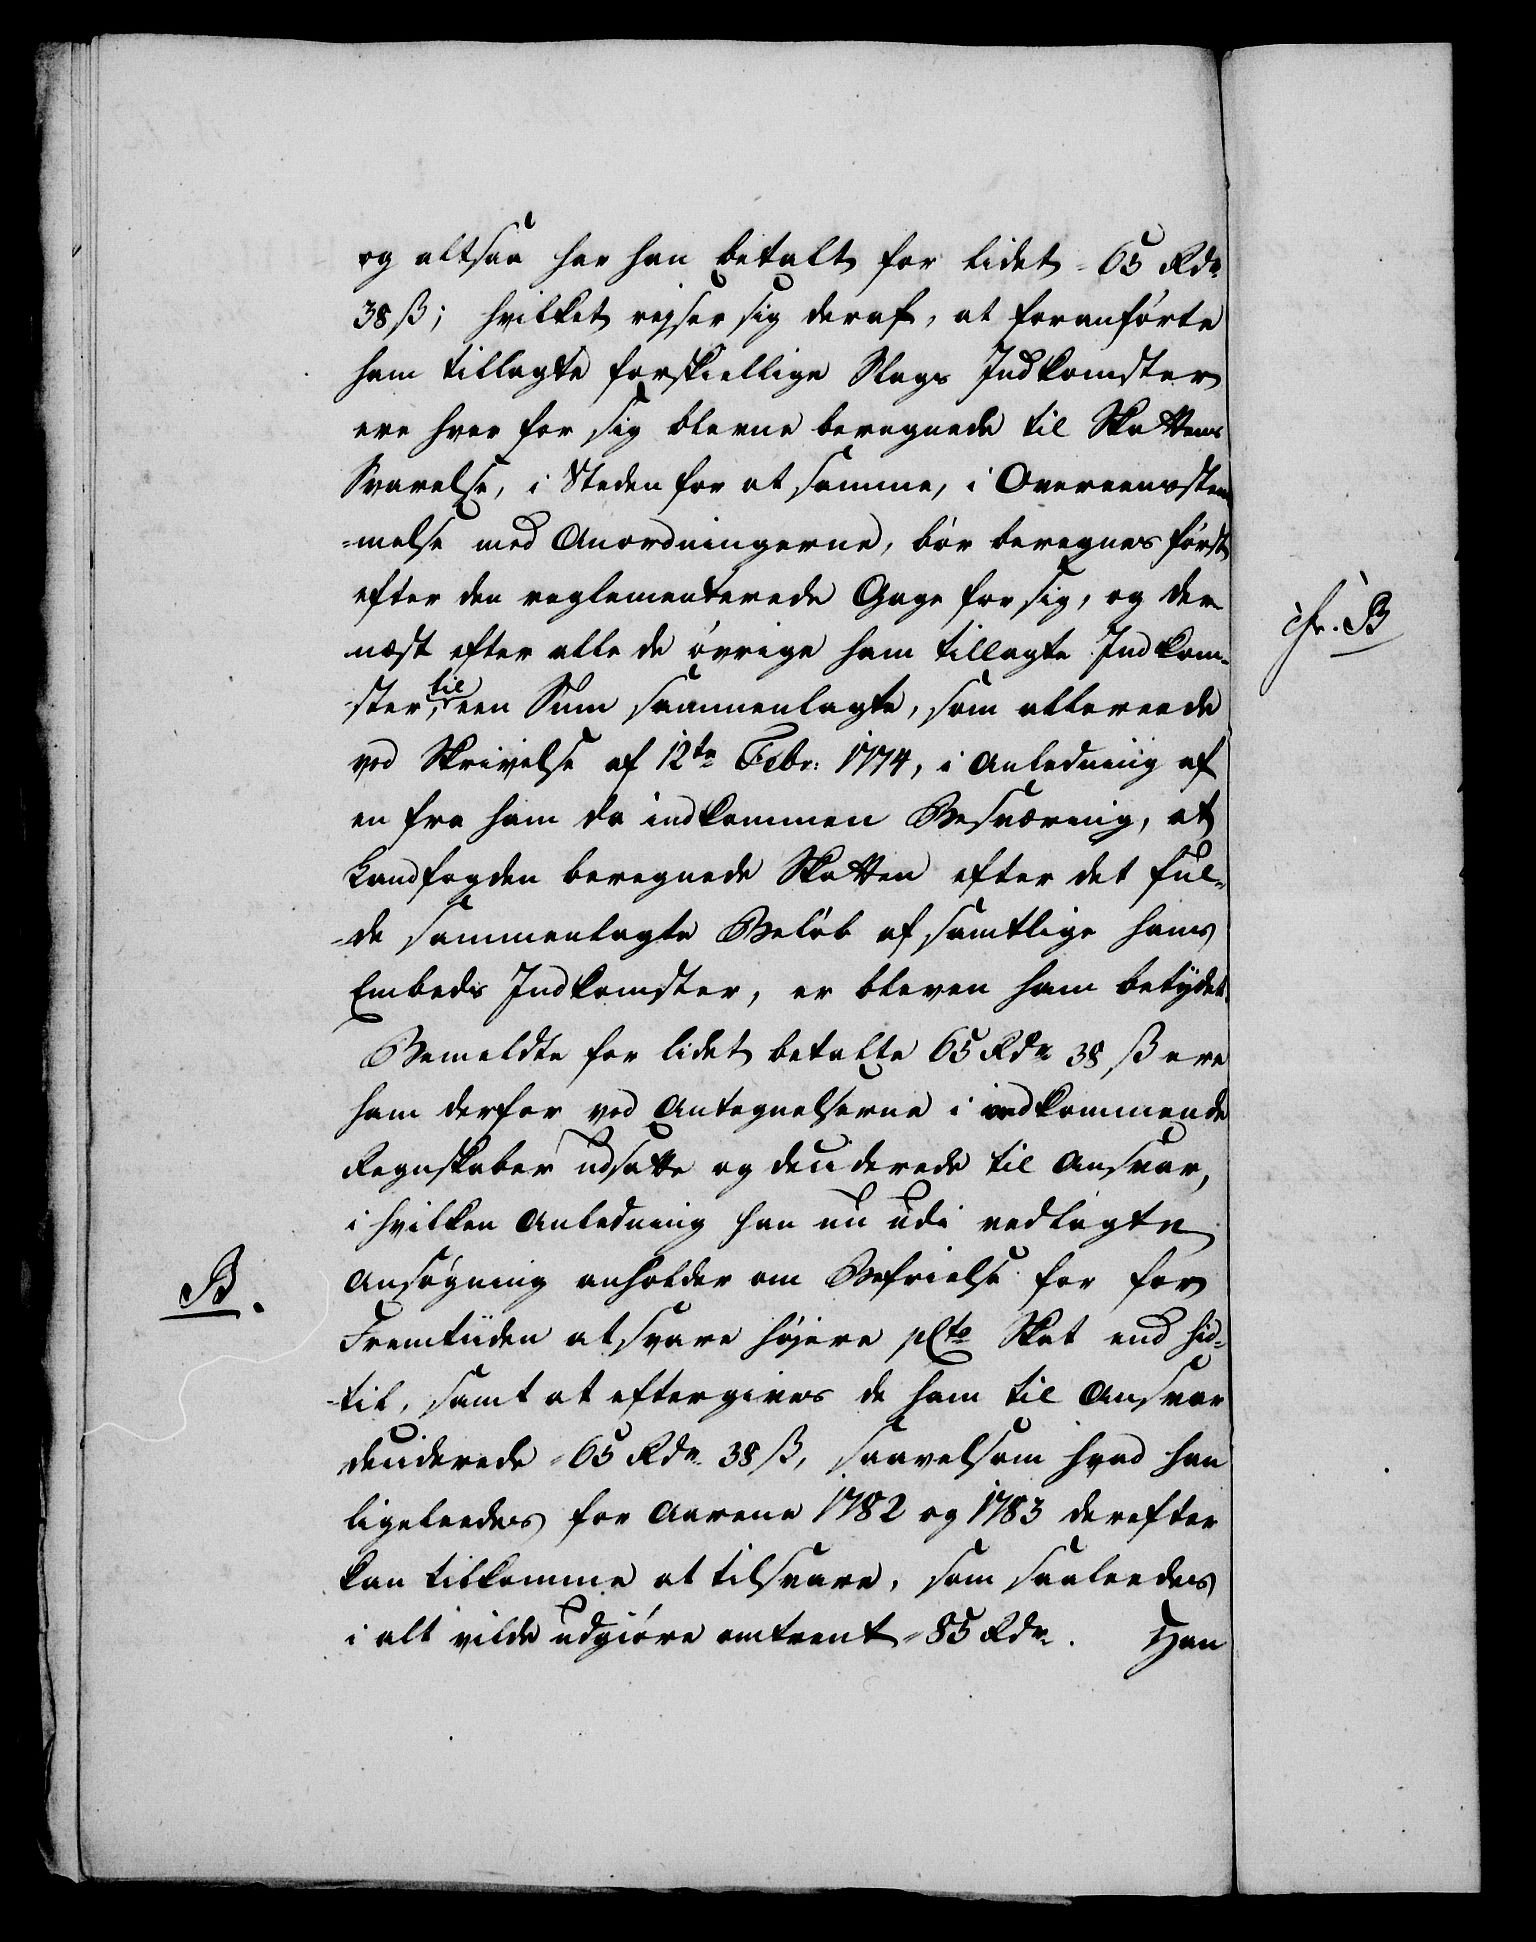 og altsaa har han betalt for lidet 65 Rdr
38 ß; hvilket rejser sig deraf, at foranførte
ham tillagte forskiellige Slags Indkomster
ere hver for sig blevne beregnede til Skattens
Svarelse, i Steden for at samme, i Overeensstem
=melse med Anordningerne, bør beregnes først
efter den reglementerede Gage for sig, og der
næst efter alle de øvrige ham tillagte Indkom-
ster, til een Sum sammenlagte, som allereede
ved Skrivelse af 12te Febr: 1774, i Anledning af
en fra ham da indkommen Besværing, at
Landfogden beregnede Skatten efter det ful-
-de sammenlagte Beløb af samtlige hans
Embeds Indkomster, er bleven ham betydet.
Bemeldte for lidet betalte 65 Rdr 38 ß ere
ham derfor ved Antegnelserne i vedkommende
Regnskaber udsatte og deciderede til Ansvar,
i hvilken Anledning han nu udi vedlagte
B.
Ansøgning anholder om Befrielse for for
Fremtiiden at svare højere pCto Skat end hid-
-til, samt at eftergives de ham til Ansvar
deciderede 65 Rdr 38 ß, saavelsom hvad han
ligeleedes for Aarene 1782 og 1783 derefter
kan tilkomme at tilsvare, som saaleedes
i alt vilde udgiøre omtrent 85 Rdr. Han
cfr. B